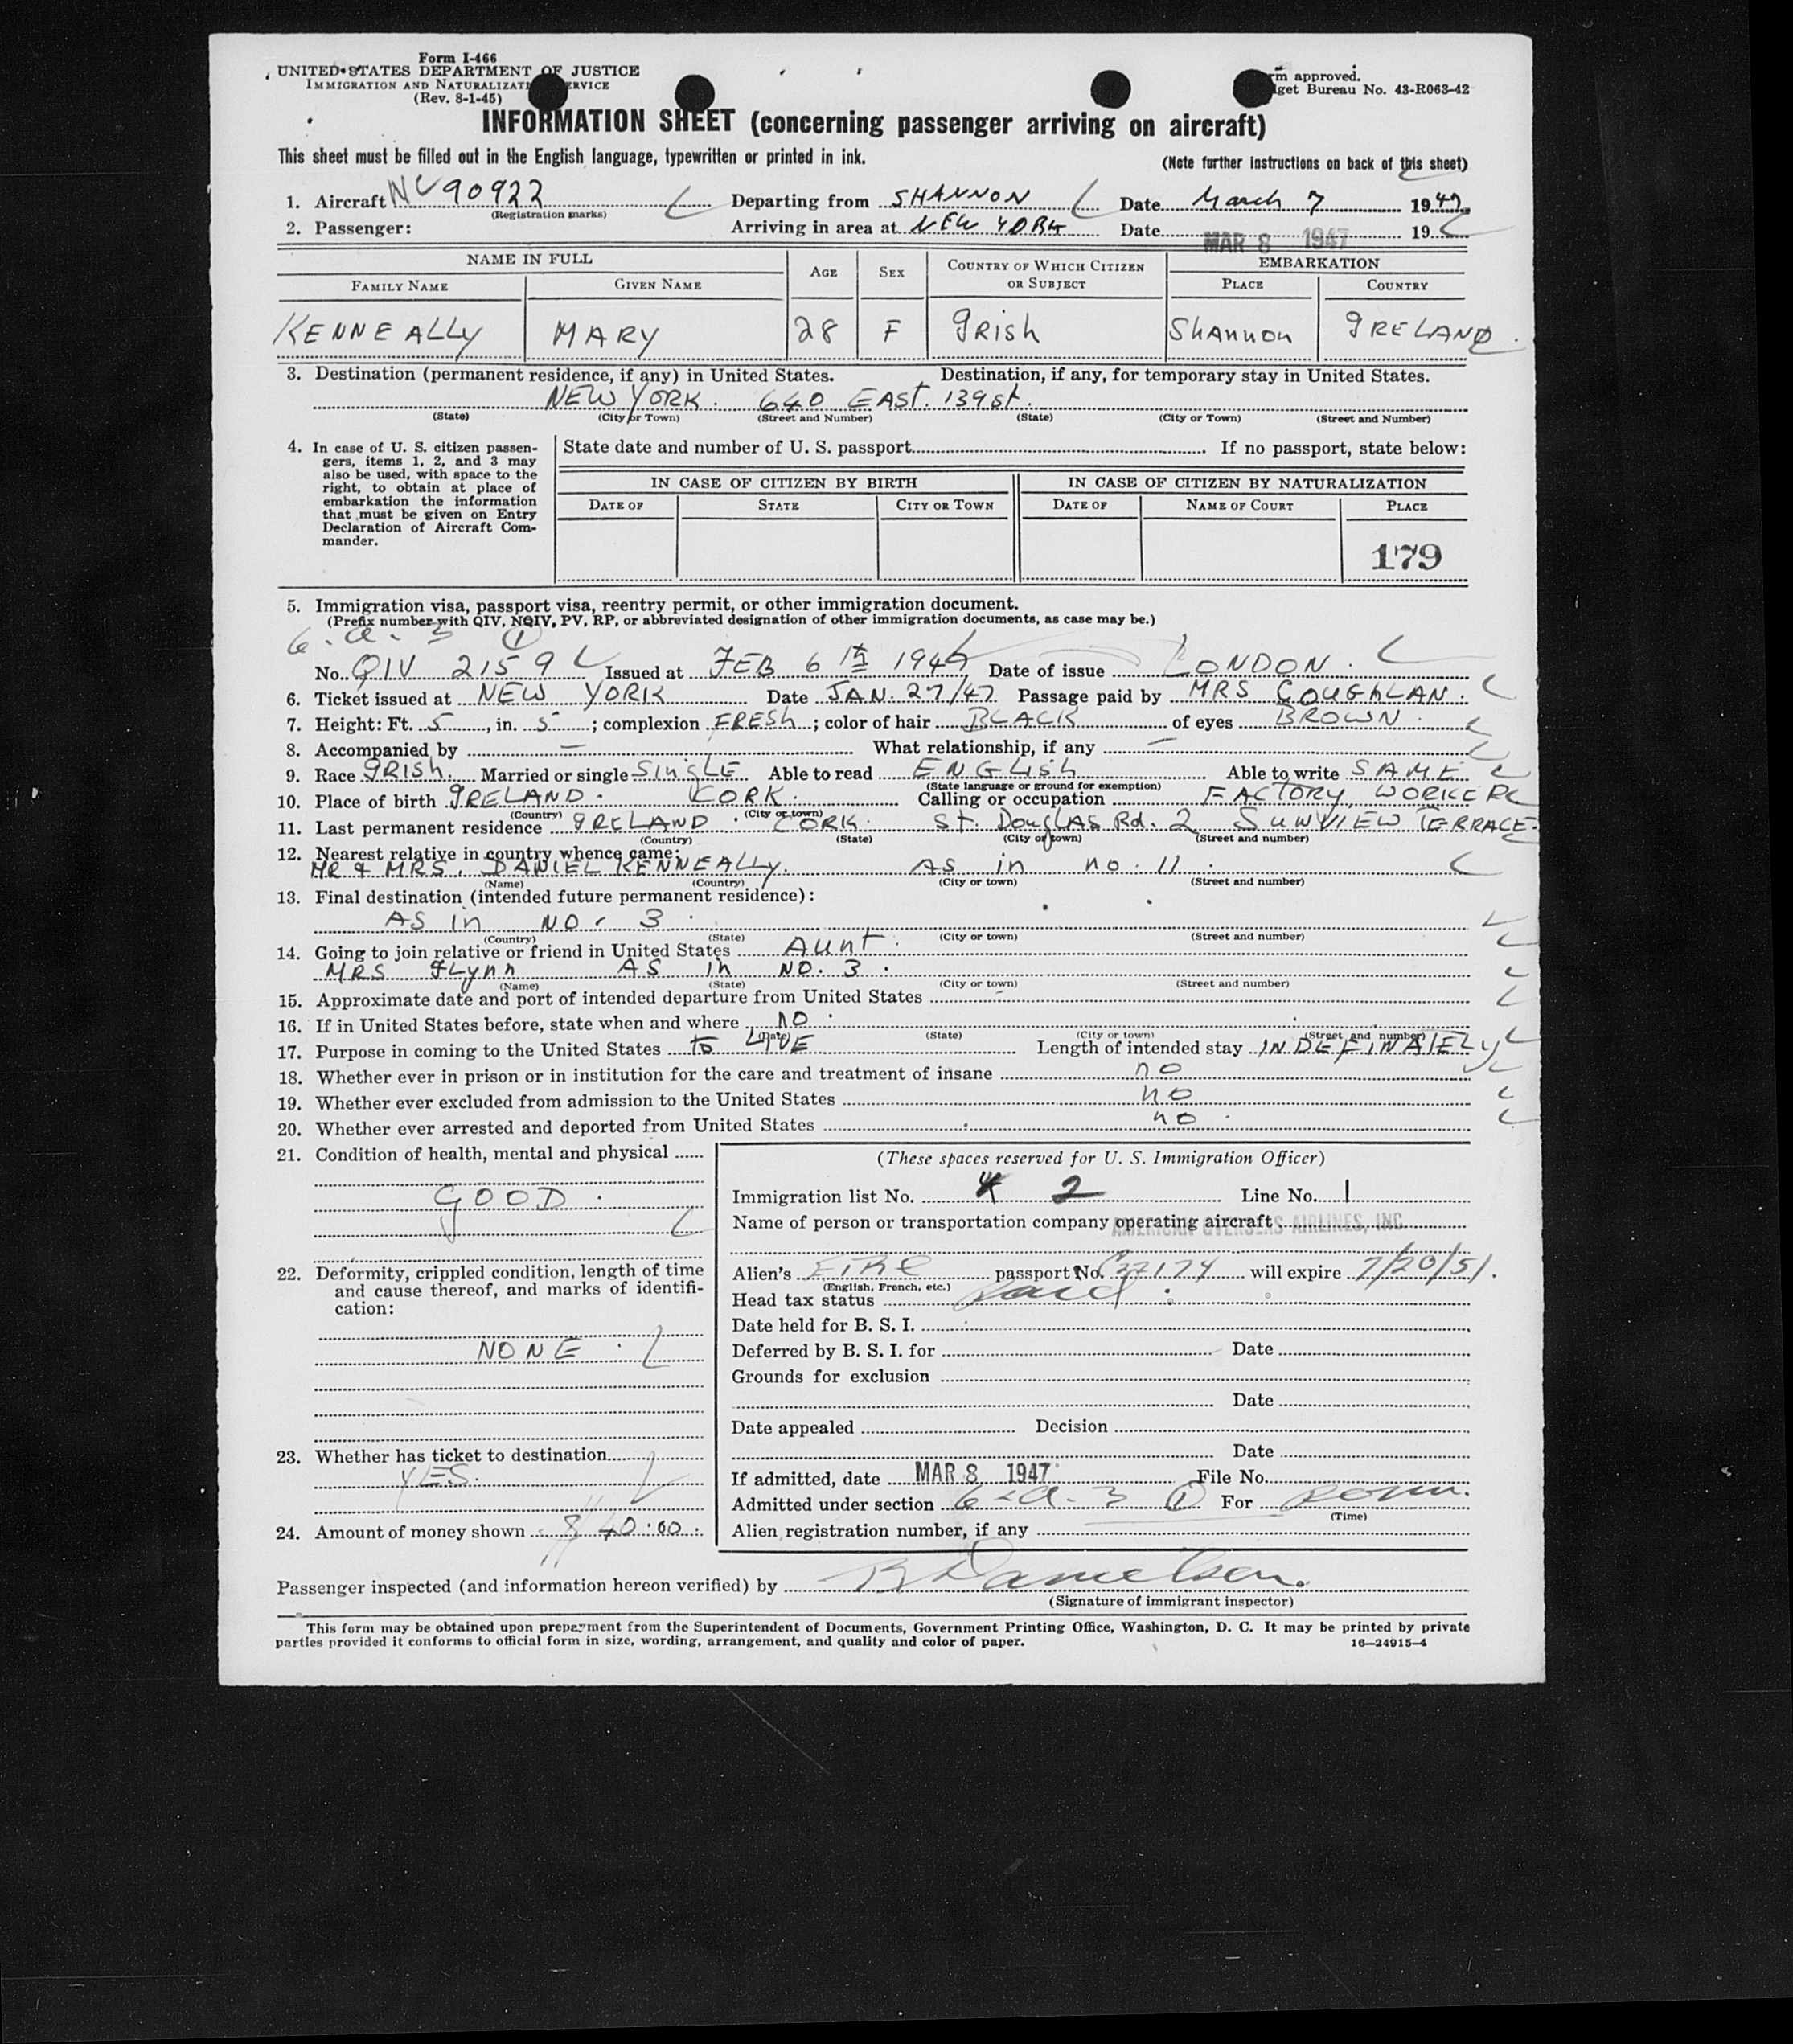 Form I-466
UNITED STATES DEPARTMENT OF JUSTICE
IMMIGRATION AND NATURALIZATI ERVICE
(Rev. 8-1-45)
rm approved.
get Bureau No. 43-R063-42
INFORMATION SHEET (concerning passenger arriving on aircraft)
This sheet must be filled out in the English language, typewritten or printed in ink.
(Note further instructions on back of this sheet)
1. Aircraft NC 90922 Departing from SHANNON Date March 7 1947
(Registration marks)
2. Passenger: Arriving in area at NEW YORK Date MAR 8 1947 19
NAME IN FULL AGE SEX COUNTRY OF WHICH CITIZEN OR SUBJECT EMBARKATION
FAMILY NAME GIVEN NAME PLACE COUNTRY
KENNEALLY MARY 28 F IRish ShANNON IRELAND.
3. Destination (permanent residence, if any) in United States. Destination, if any, for temporary stay in United States.
NEW YORK. 640 EAST. 139 st.
(State) (City or Town) (Street and Number) (State) (City or Town) (Street and Number)
4. In case of U. S. citizen passen-
gers, items 1, 2, and 3 may
also be used, with space to the
right, to obtain at place of
embarkation the information
that must be given on Entry
Declaration of Aircraft Com-
mander.
State date and number of U. S. passport If no passport, state below:
IN CASE OF CITIZEN BY BIRTH IN CASE OF CITIZEN BY NATURALIZATION
DATE OF STATE CITY OR TOWN DATE OF NAME OF COURT PLACE
179
5. Immigration visa, passport visa, reentry permit, or other immigration document.
(Prefix number with QIV, NQIV, PV, RP, or abbreviated designation of other immigration documents, as case may be.)
6. a. 3 (1)
No. QIV 2159 Issued at FEB 6 th 1947 Date of issue LONDON.
6. Ticket issued at NEW YORK Date JAN. 27/47 Passage paid by MRS COUGHLAN.
7. Height: Ft. 5, in. 5; complexion FRESh; color of hair BLACK of eyes BROWN.
8. Accompanied by — What relationship, if any —
9. Race IRISh. Married or single SINgLE Able to read ENGLish Able to write SAME
(State language or ground for exemption)
10. Place of birth IRELAND. CORK. Calling or occupation FACTORY WORKER
(Country) (City or town)
11. Last permanent residence IRELAND. CORK. St. DOUGLAS Rd. 2 SUNVIEW TERRACE.
(Country) (State) (City or town) (Street and number)
12. Nearest relative in country whence came:
MR & MRS. DANIEL KENNEALLY. AS in no. 11.
(Name) (Country) (City or town) (Street and number)
13. Final destination (intended future permanent residence):
AS in NO. 3.
(Country) (State) (City or town) (Street and number)
14. Going to join relative or friend in United States Aunt.
MRS FLynn AS in NO. 3.
(Name) (State) (City or town) (Street and number)
15. Approximate date and port of intended departure from United States
16. If in United States before, state when and where no.
(Date) (State) (City or town) (Street and number)
17. Purpose in coming to the United States to LIVE Length of intended stay INDEFINATELY
18. Whether ever in prison or in institution for the care and treatment of insane no
19. Whether ever excluded from admission to the United States no
20. Whether ever arrested and deported from United States no.
21. Condition of health, mental and physical
GOOD.
22. Deformity, crippled condition, length of time
and cause thereof, and marks of identifi-
cation:
NONE.
23. Whether has ticket to destination
YES.
24. Amount of money shown $ 40.00.
(These spaces reserved for U. S. Immigration Officer)
Immigration list No. 2 Line No. 1
Name of person or transportation company operating aircraft AMERICAN OVERSEAS AIRLINES, INC.
Alien's EIRE passport No. 27174 will expire 7/20/51.
(English, French, etc.)
Head tax status Paid.
Date held for B. S. I.
Deferred by B. S. I. for Date
Grounds for exclusion
Date
Date appealed Decision
Date
If admitted, date MAR 8 1947 File No.
Admitted under section 6-a. 3 (1) For perm.
(Time)
Alien registration number, if any
Passenger inspected (and information hereon verified) by B Danielson.
(Signature of immigrant inspector)
This form may be obtained upon prepayment from the Superintendent of Documents, Government Printing Office, Washington, D. C. It may be printed by private
parties provided it conforms to official form in size, wording, arrangement, and quality and color of paper. 16—24915-4